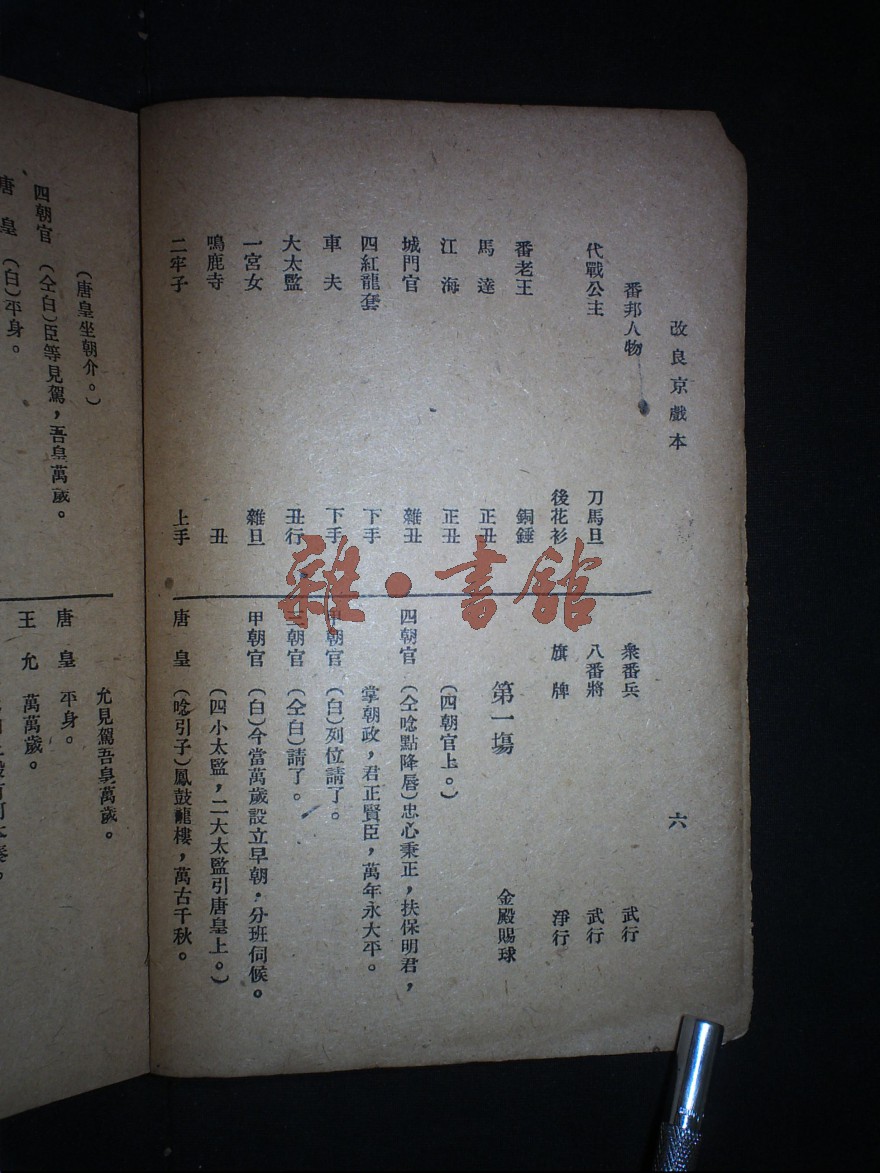 改良京戲本
六
番邦人物
代戰公主 刀馬旦
後花衫
番老王 銅錘
馬達 正丑
江海 正丑
城門官 雜丑
四紅龍套 下手
車夫 下手
大太監 丑行
一宮女 雜旦
鳴鹿寺 丑
二牢子 上手
衆番兵 武行
八番將 武行
旗牌 淨行
第一塲 金殿賜球
(四朝官上。)
四朝官 (仝唸點降唇)忠心秉正，扶保明君，
掌朝政，君正賢臣，萬年永大平。
甲朝官 (白)列位請了。
三朝官 (仝白)請了。
甲朝官 (白)今當萬歲設立早朝，分班伺候。
(四小太監，二大太監引唐皇上。)
唐皇 (唸引子)鳳鼓龍樓，萬古千秋。
(唐皇坐朝介。)
四朝官 (仝白)臣等見駕，吾皇萬歲。
唐皇 (白)平身。
允見駕吾皇萬歲。
唐皇 平身。
王允 萬萬歲。
雜·書館